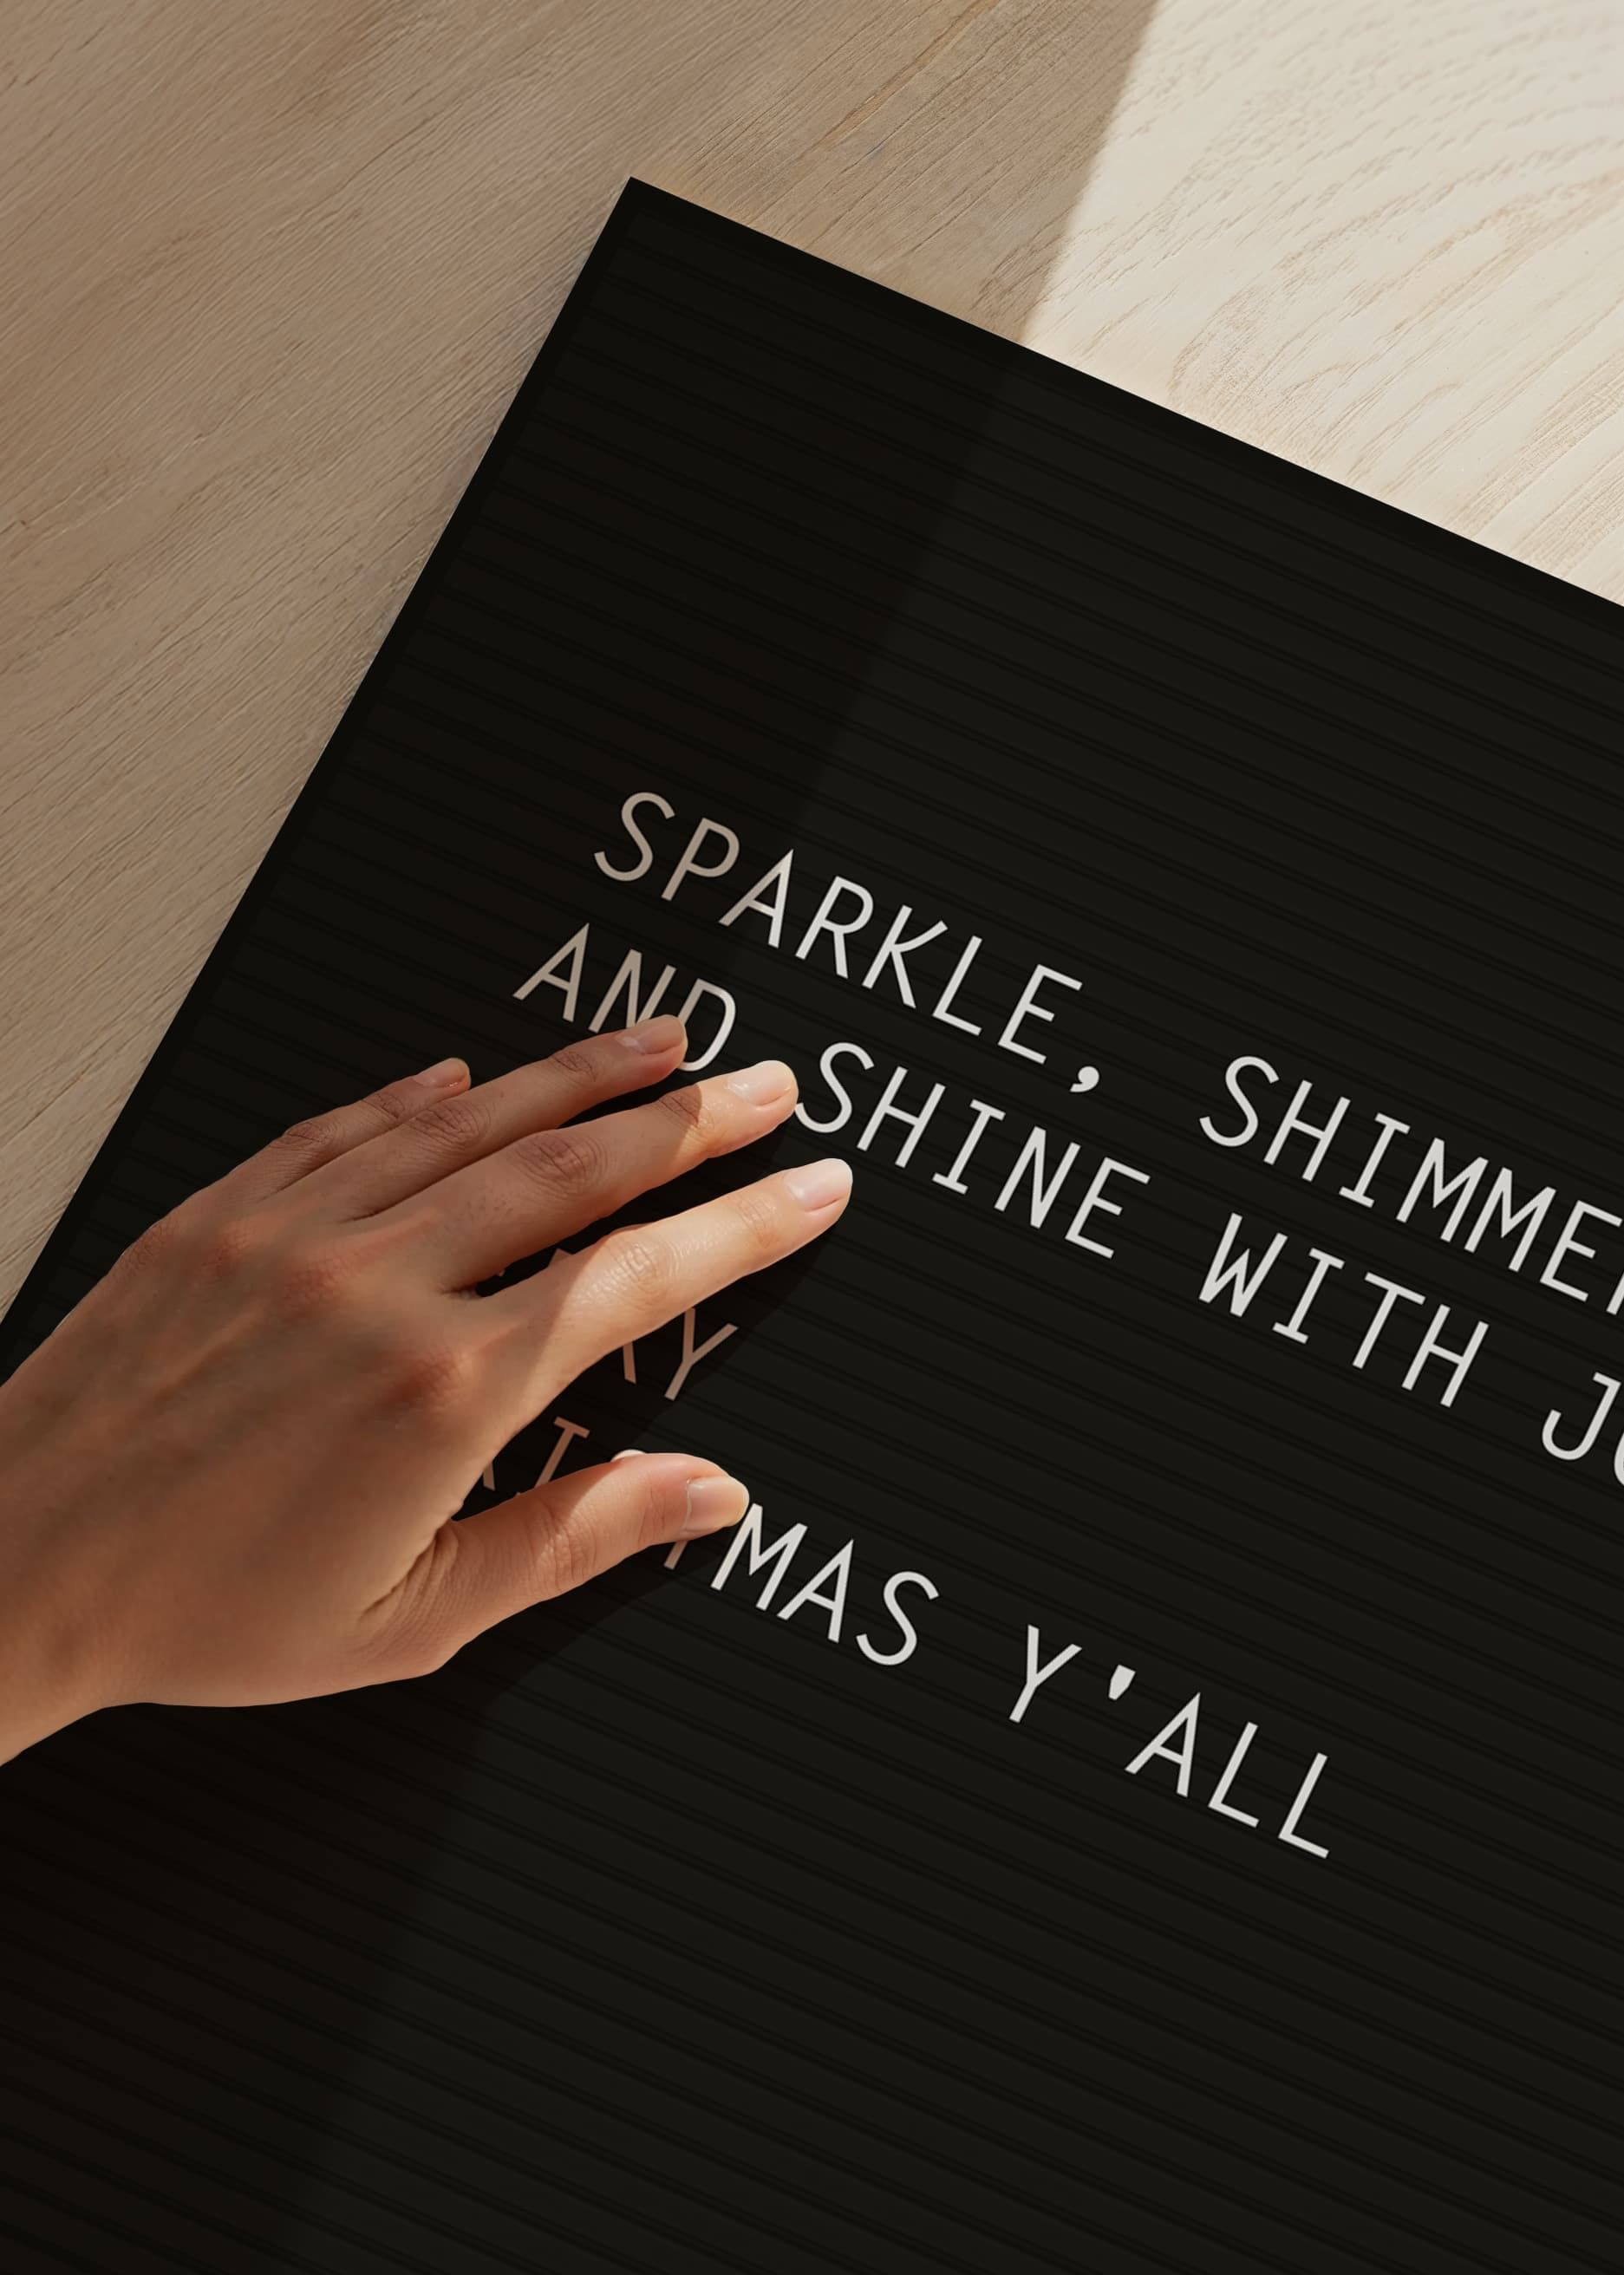 SPARKLE, SHIMMER
AND SHINE WITH
MAS Y'ALL